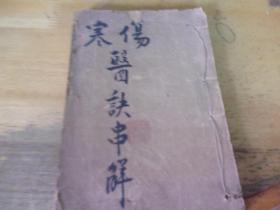 傷寒
醫訣串解